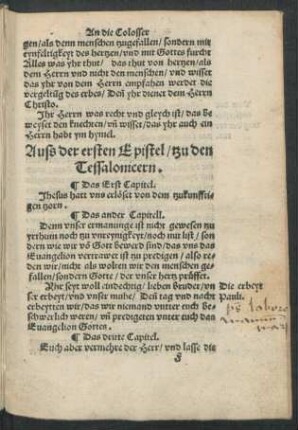 An die Colosser
gen/als denn menschen zugefallen/sondern mit
eynfeltigkeyt des hertzen/vnd mit Gottes furcht
Alles was yhr thut/das thut von hertzen/als
dem Herrn vnd nicht den menschen/vnd wisset
das yhr von dem Herrn empfahen werdet die
vergeltũg des erbes/Deñ yhr dienet dem Herrn
Christo.
Ihr Herrn was recht vnd gleych ist/das be
weyset den knechten/vñ wisset/das yhr auch ein
Herrn habt ym hymel.
Auß der ersten Epistel/tzu den
Tessalonicern.
¶ Das Erst Capitel.
Jhesus hatt vns erlöset von dem zukunfftigen
gen zorn.
¶ Das ander Capitell.
Denn vnser ermanunge ist nicht gewesen zu
yrthum noch zu vnreynigkeyt/noch mit list/son
dern wie wir võ Gott bewerd sind/das vns das
Euangelion vertrawet ist zu predigen/also re
den wir/nicht als wolten wir den menschen ge
fallen/sondern Gotte/der vnser hertz prüffet.
Yhr seyt woll eindechtig/lieben bruder/vn
ser erbeyt/vnd vnser muhe/Deñ tag vnd nacht
erbeytten wir/das wir niemand vnter euch be
schwerlich weren/vñ predigeten vnter euch das
Euangelion Gottes.
Die erbeyt
Pauli.
¶ Das dritte Capitel.
Euch aber vermehre der Herr/vnd lasse die